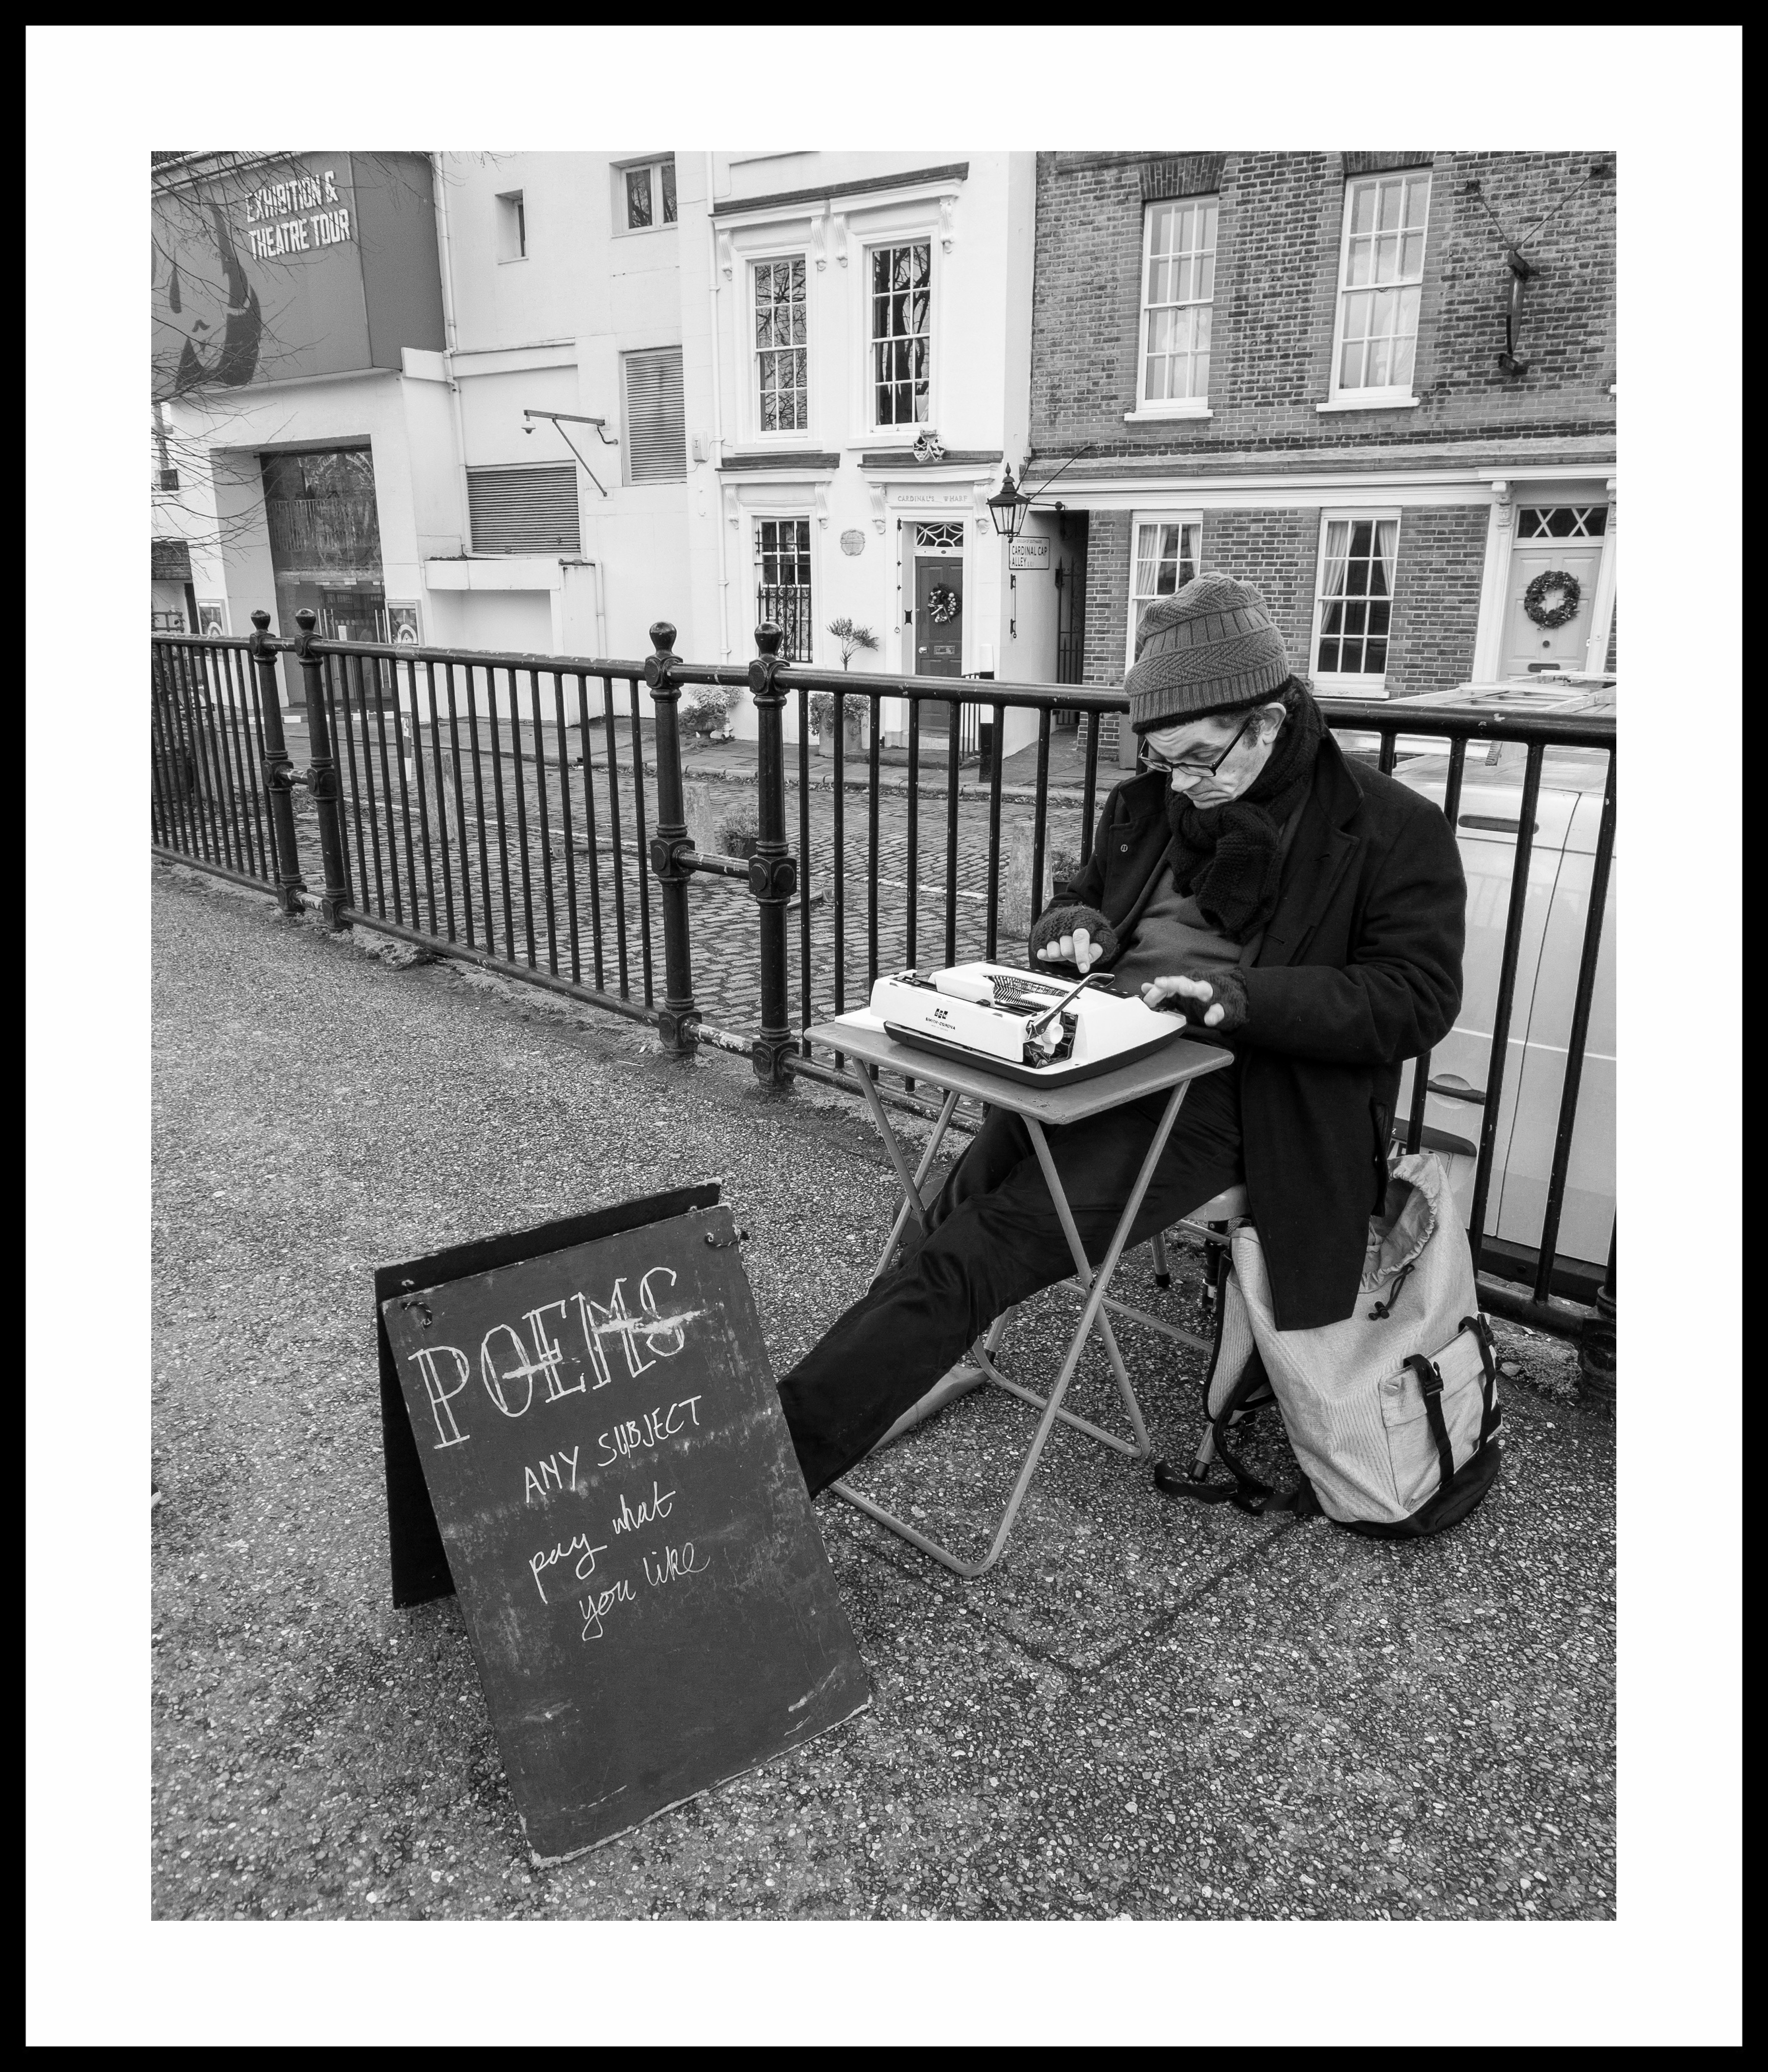 EXHIBITION &
THEATRE TOUR
CARDINAL'S WHARF
CARDINAL CAP
ALLEY
SMITH-CORONA
POEMS
ANY SUBJECT
pay what
you like